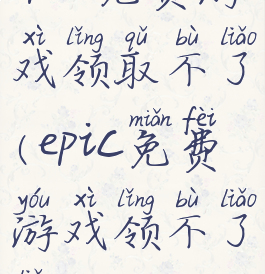 xì lǐng qǔ bù liǎo
戏领取不了
miǎn fèi
(epic免费
yóu xì lǐng bù liǎo
游戏领不了